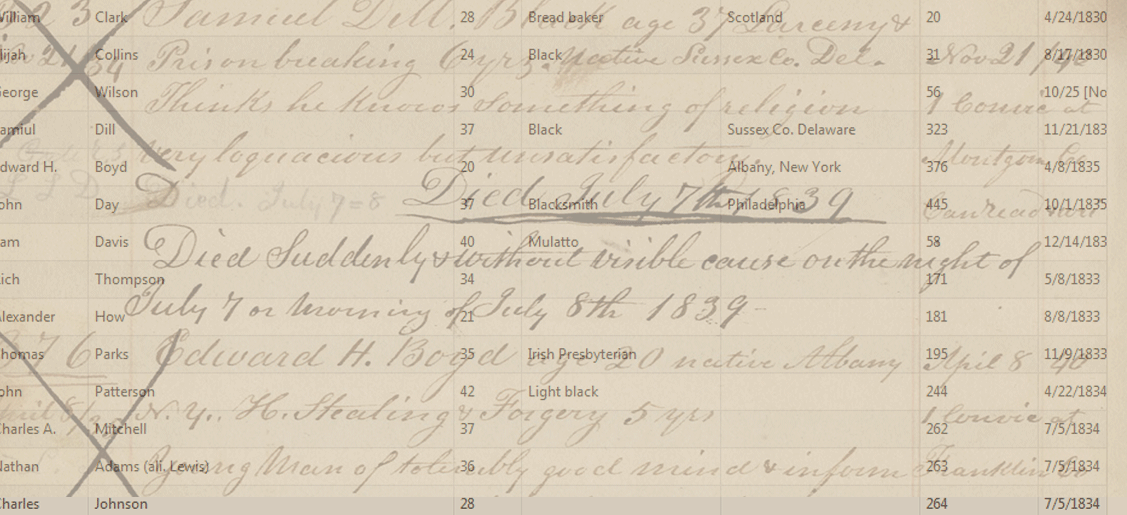 William Clark 28 Bread baker Scotland 20 4/24/1830
23 Samuel Dill. Black age 37 Larceny &
lijah Collins 24 Black 31 8/17/1830
Nov 21/34 Prison breaking 6 yrs. native Sussex Co. Del. Nov 21/42
George Wilson 30 56 10/25 [No
Thinks he knows something of religion 1 Convic at
amiul Dill 37 Black Sussex Co. Delaware 323 11/21/183
very loquacious but unsatisfactory Montgom Co
dward H. Boyd 20 Albany, New York 376 4/8/1835
Died. July 7=8 Died July 7th 1839
ohn Day 37 Blacksmith Philadelphia 445 10/1/1835
Can read
am Davis 40 Mulatto 58 12/14/183
Died Suddenly & without visible cause on the night of
Rich Thompson 34 171 5/8/1833
July 7 or morning of July 8th 1839
Alexander How 21 181 8/8/1833
Thomas Parks 35 Irish Presbyterian 195 11/9/1833
376 Edward H. Boyd age 20 native Albany April 8 40
ohn Patterson 42 Light black 244 4/22/1834
N. Y. H. Stealing & Forgery 5 yrs 1 Convic at
Charles A. Mitchell 37 262 7/5/1834
Nathan Adams (ali. Lewis) 36 263 7/5/1834
Young Man of tolerably good mind & inform Franklin Co
Charles Johnson 28 264 7/5/1834